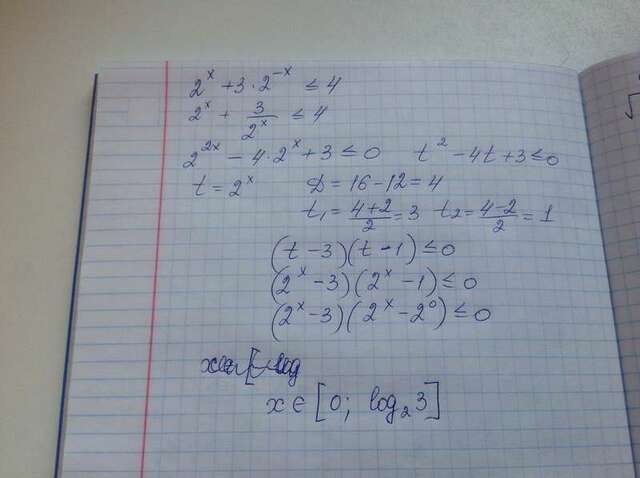 2ˣ + 3 · 2⁻ˣ ≤ 4
2ˣ + 3/2ˣ ≤ 4
2²ˣ − 4 · 2ˣ + 3 ≤ 0 t² − 4t + 3 ≤ 0
t = 2ˣ D = 16 − 12 = 4
t₁ = (4+2)/2 = 3 t₂ = (4−2)/2 = 1
(t − 3)(t − 1) ≤ 0
(2ˣ − 3)(2ˣ − 1) ≤ 0
(2ˣ − 3)(2ˣ − 2⁰) ≤ 0
x ∈ [0; log₂ 3]